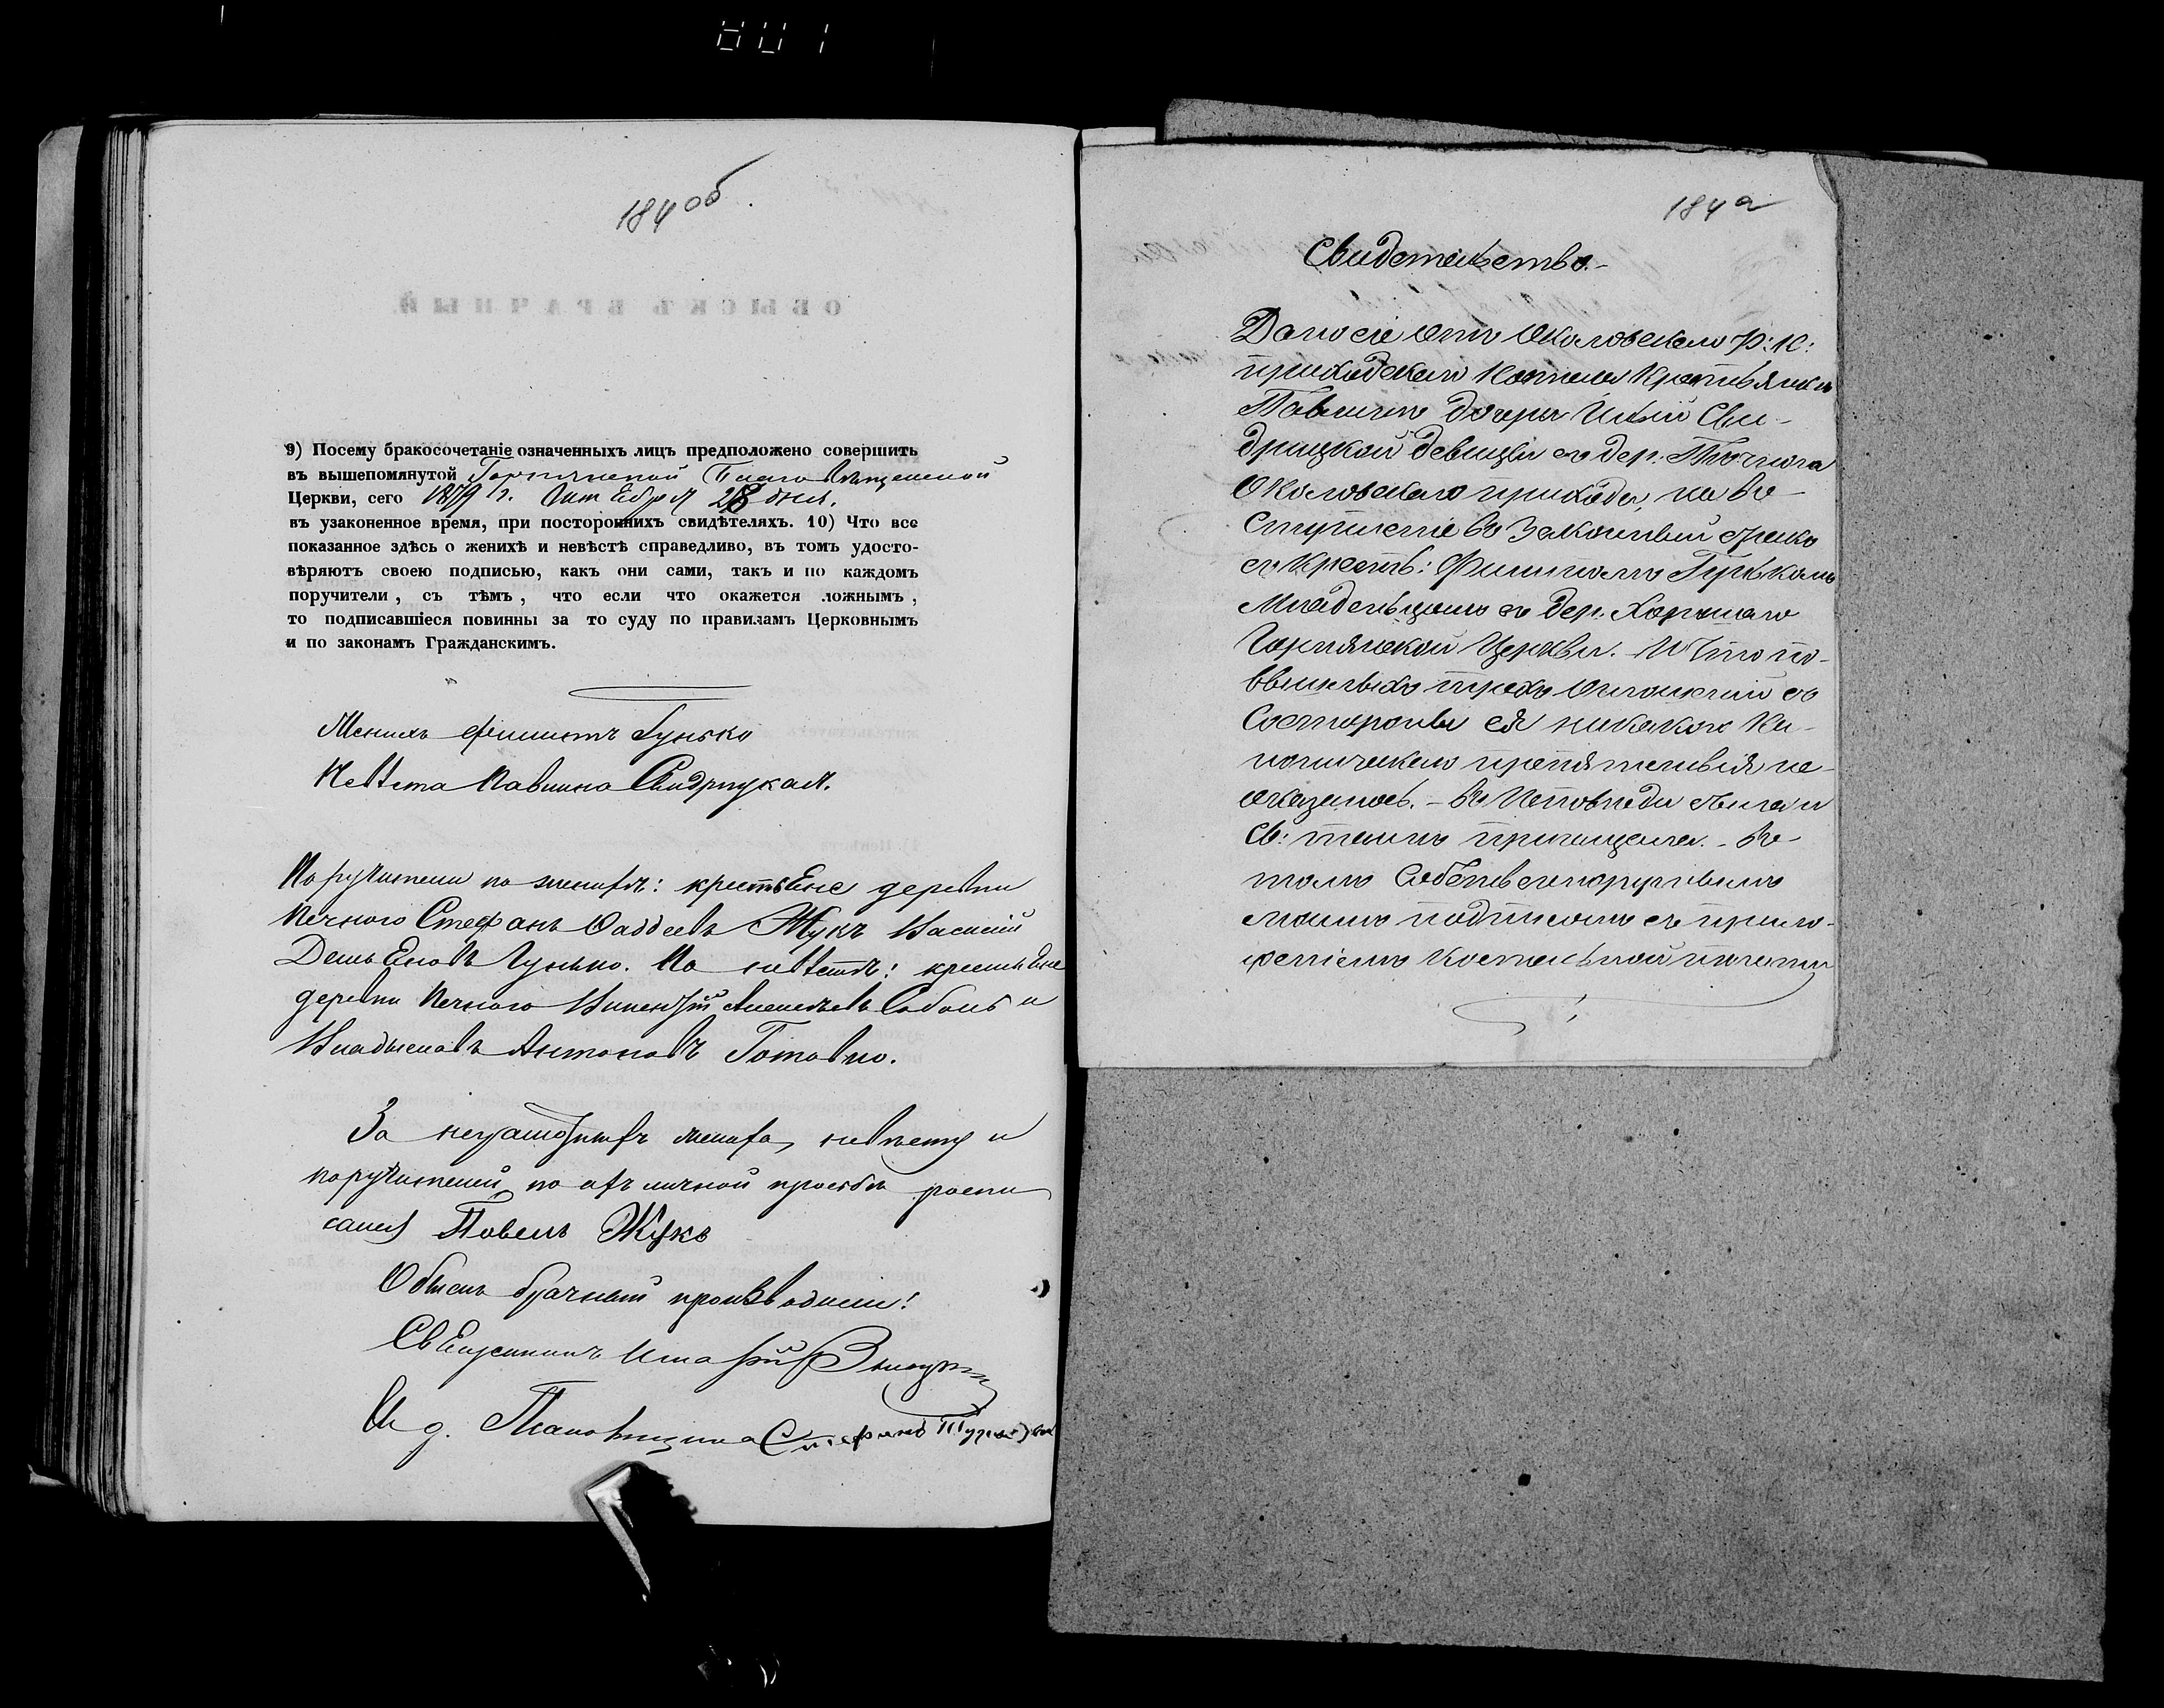 184 об.
9) Посему бракосочетаніе означенныхъ лицъ предположено совершить
въ вышепомянутой Горнянской Благовѣщенской
Церкви, сего 1879 г. 28 дня.
въ узаконенное время, при постороннихъ свидѣтеляхъ. 10) Что все
показанное здѣсь о женихѣ и невѣстѣ справедливо, въ томъ удосто-
вѣряютъ своею подписью, какъ они сами, такъ и по каждомъ
поручители, съ тѣмъ, что если что окажется ложнымъ,
то подписавшіеся повинны за то суду по правиламъ Церковнымъ
и по законамъ Гражданскимъ.
Женихъ Филиппъ Гунько
Невѣста Павлина Свидрицкая.
Поручители по женихѣ: крестьяне деревни
Печного Стефанъ Фаддеевъ Жукъ Василій
Демьяновъ Гунько. По невѣстѣ: крестьяне
деревни Печного Викентій Соболь и
Владыславъ Антоновъ Готовко.
За неграмотныхъ жениха, невѣсту и
поручителей по ихъ личной просьбѣ роспи
сался Павелъ Жукъ
Обыскъ брачный производили!
Священникъ
И д. Псаломщика Стефанъ
184 а
Свидетельство.-
Дано сіе отъ Околовскаго Р: К:
приходскаго Костела Крестьянки
дочери Сви-
дрицкой девицы съ дер.
Околовскаго прихода, на в-
ступленіе въ Законный бракъ
съ Крестья: Филиппомъ Гунькомъ
съ дер.
Горнянской Церкви. И что по
трехъ оглашеній со
стороны ея никакого Ка-
ноническаго препятствія не
оказалось. - въ Исповѣди была и
Св: таинъ причащена. - въ
томъ Собственноручнымъ
моимъ подписомъ съ прило-
женіемъ Костельной печати